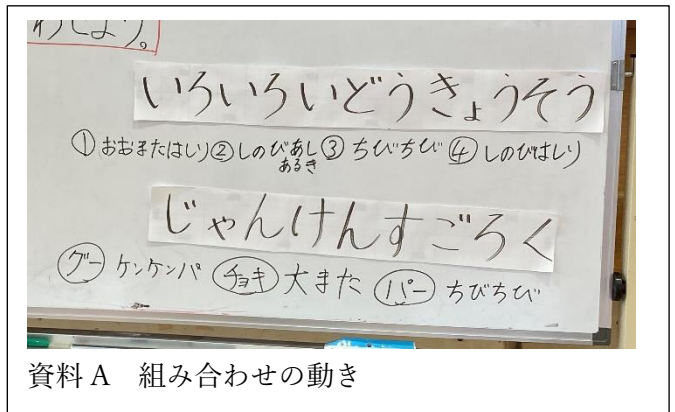 わしよう。
いろいろいどうきょうそう
①おおまたはしり②しのびあしあるき③ちびちび④しのびはしり
じゃんけんすごろく
グーケンケンパ チョキ大また パーちびちび
資料A 組み合わせの動き